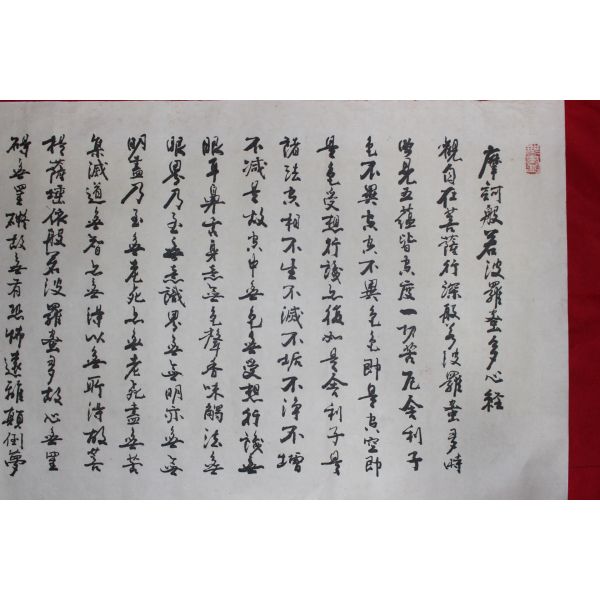 摩訶般若波羅蜜多心経
觀自在菩薩行深般若波羅蜜多時
照見五蘊皆空度一切苦厄舎利子
色不異空空不異色色即是空空即
是色受想行識亦復如是舎利子是
諸法空相不生不滅不垢不浄不増
不減是故空中無色無受想行識無
眼耳鼻舌身意無色聲香味觸法無
眼界乃至無意識界無無明亦無無
明盡乃至無老死亦無老死盡無苦
集滅道無智亦無得以無所得故菩
提薩埵依般若波羅蜜多故心無罣
礙無罣礙故無有恐怖遠離顛倒夢